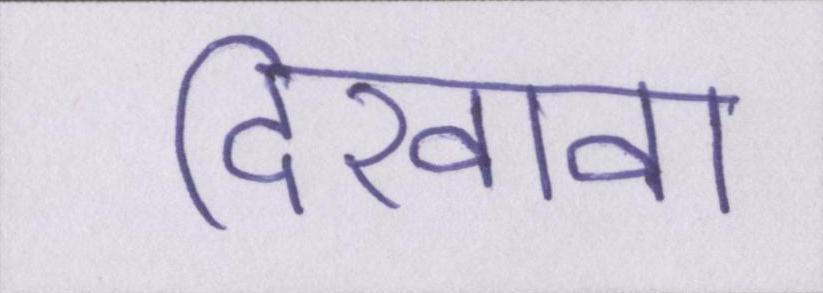 दिखावा